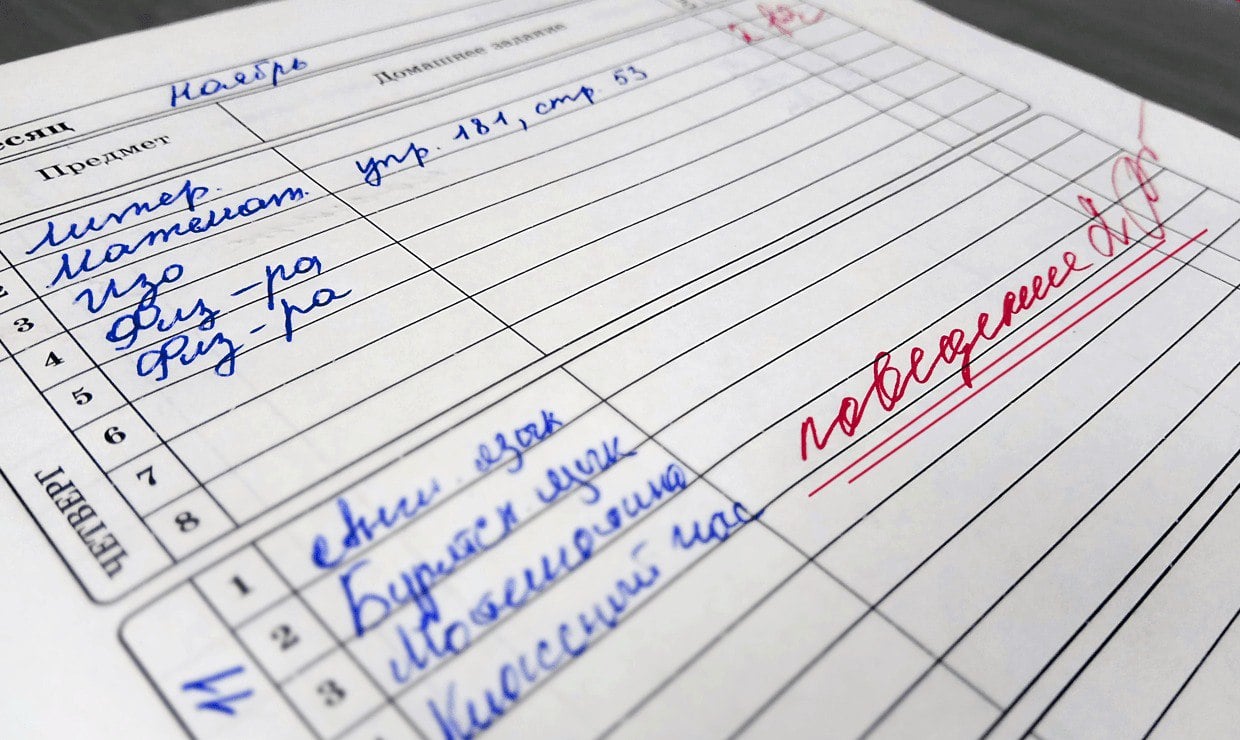 Ноябрь
Предмет Домашнее задание
Литер.
Математ. упр. 181, стр. 53
2
Изо
3
Физ-ра
4
Физ-ра
5
6
7
8
ЧЕТВЕРГ
поведение
1 Англ. язык
2 Бурятск. язык
3 Математика
Классный час
11